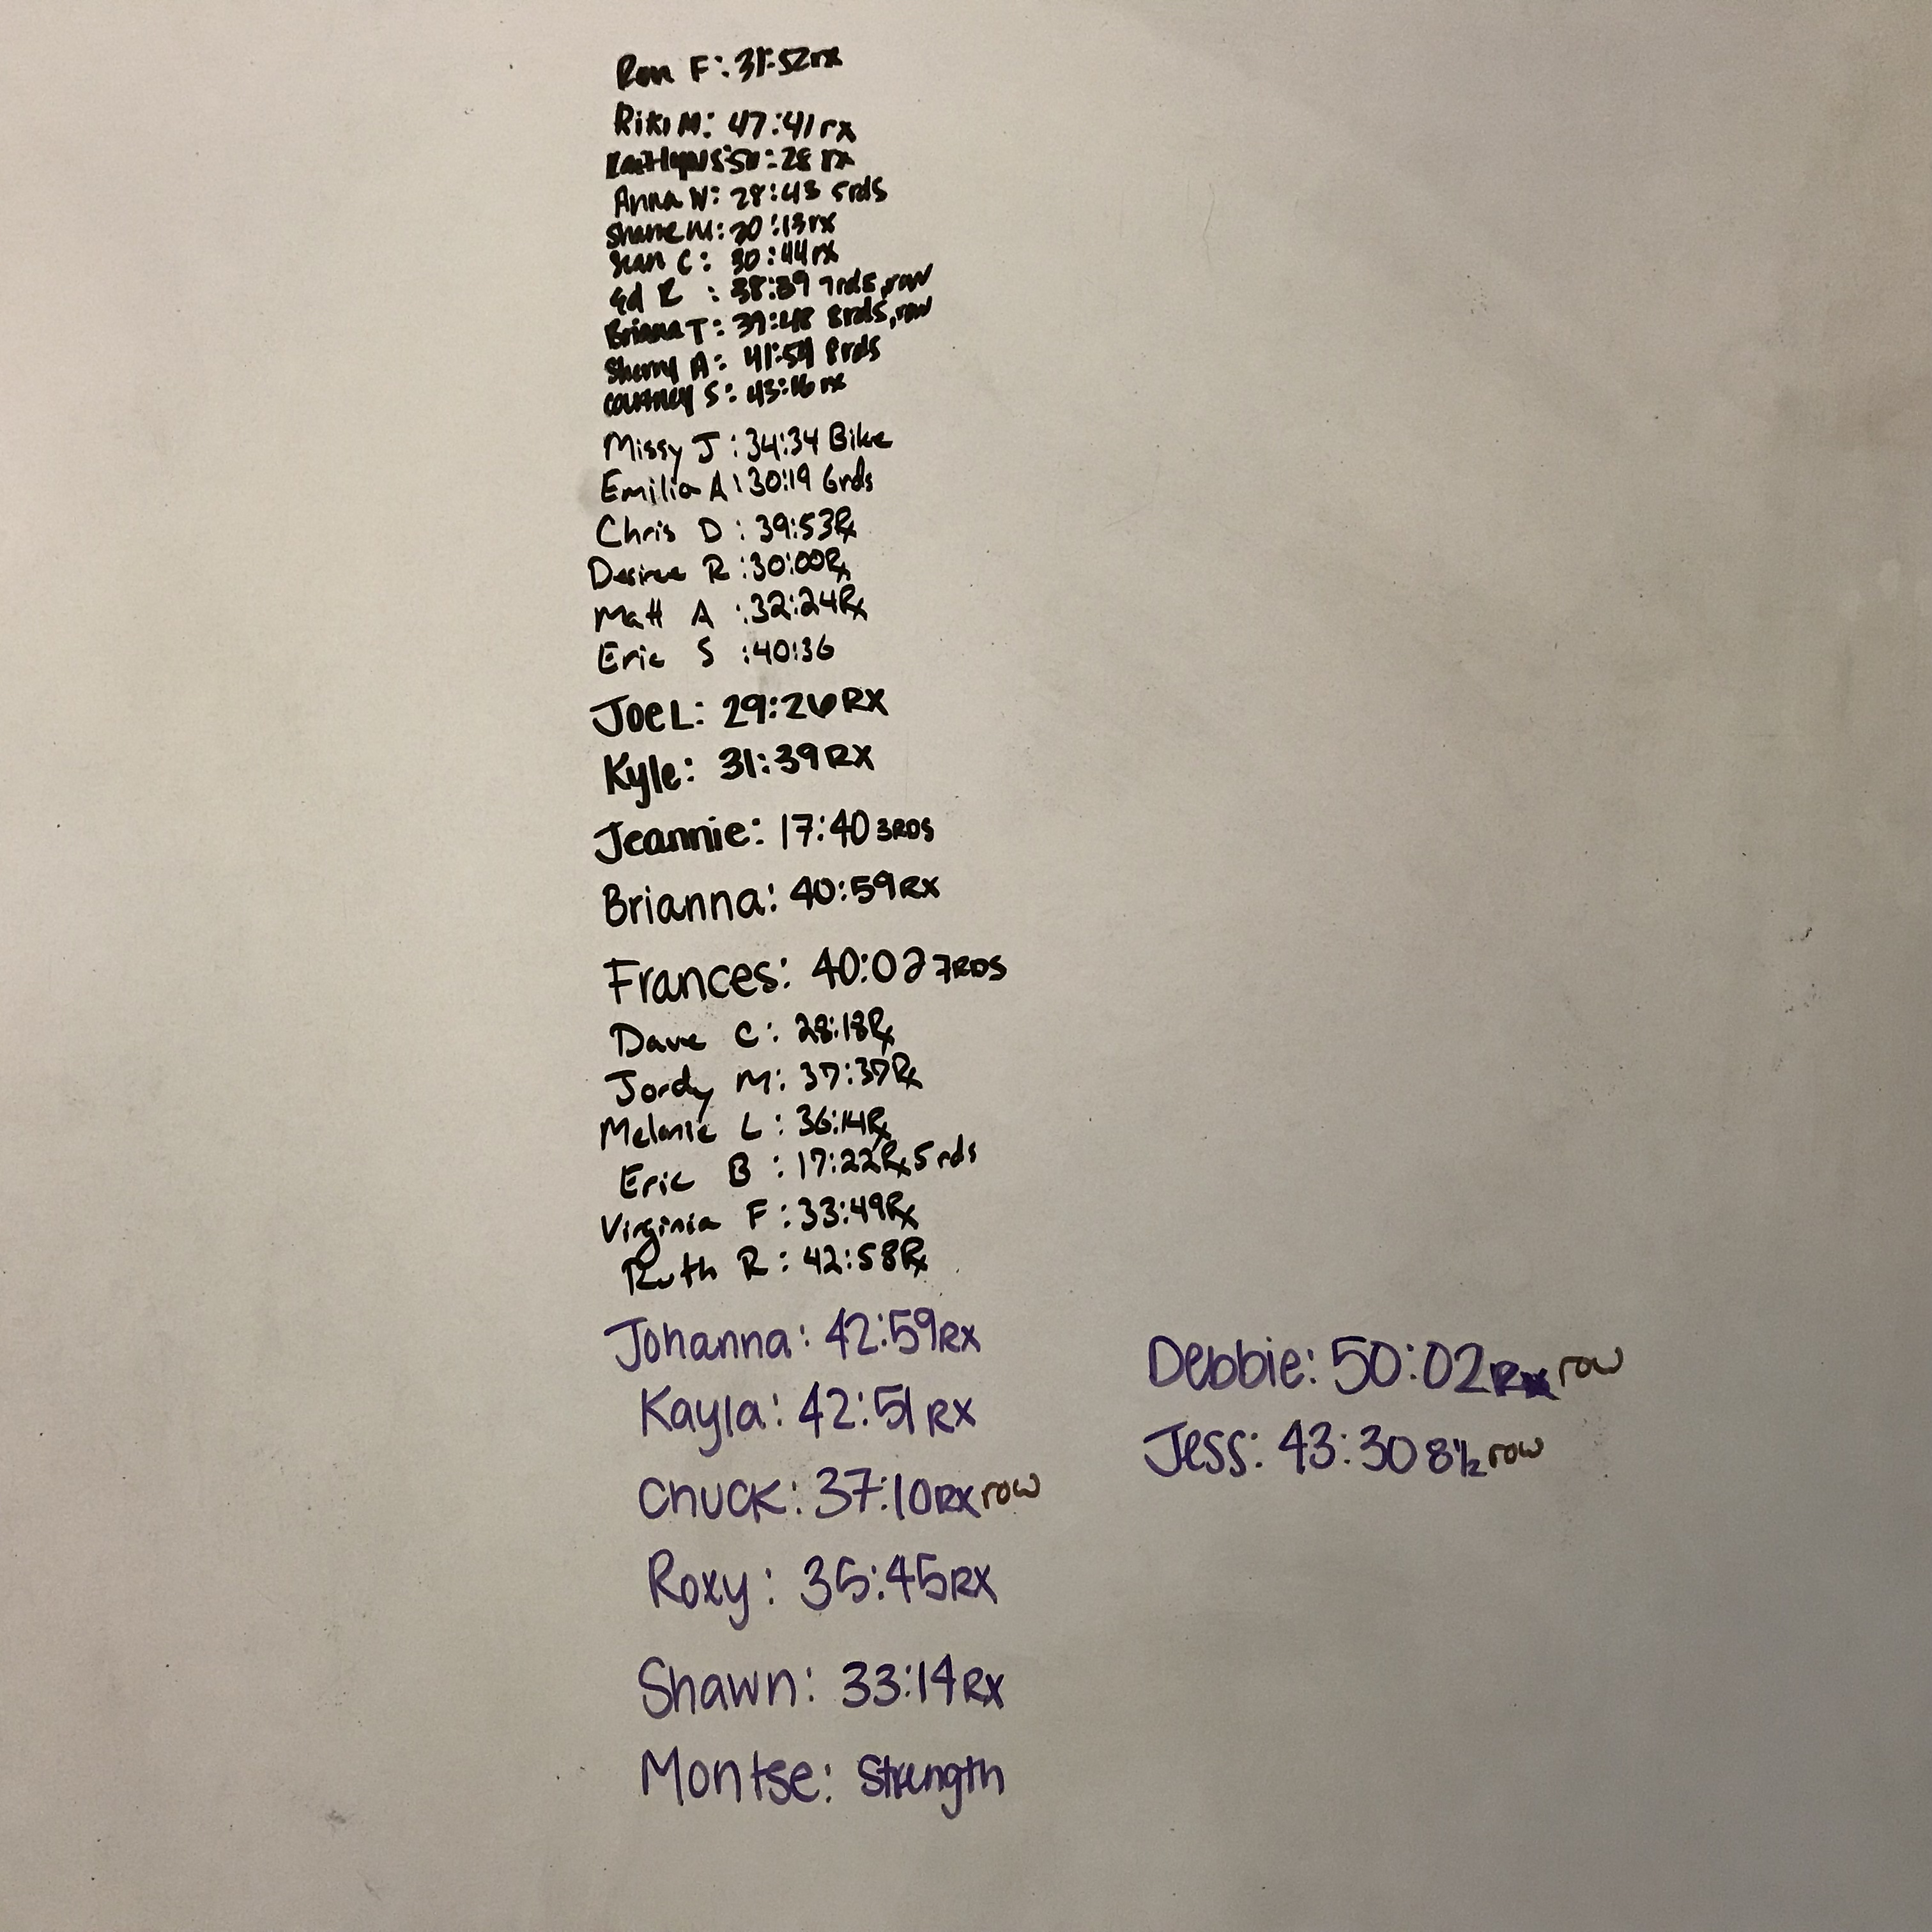 Ron F: 31:52rx
Riki M: 47:41 rx
Kaitlyn S: 50:28 rx
Anna W: 28:43 5rds
Shane M: 30:13rx
Sean C: 30:44rx
Ed R : 38:39 7rds, row
Briana T: 39:48 8rds, row
Sherry A: 41:54 8rds
Courtney S: 43:16 rx
Missy J : 34:34 Bike
Emilia A: 30:19 6rds
Chris D : 39:53Rx
Desiree R :30:00Rx
Matt A :32:24Rx
Eric S :40:36
Joe L: 29:26 RX
Kyle: 31:39 RX
Jeannie: 17:40 3RDS
Brianna: 40:59 RX
Frances: 40:02 7RDS
Dave C: 28:18Rx
Jordy M: 37:37Rx
Melanie L: 36:14Rx
Eric B : 17:22Rx 5rds
Virginia F : 33:49Rx
Ruth R : 42:58Rx
Johanna: 42:59RX
Kayla: 42:51 RX
Chuck: 37:10RX row
Roxy: 35:45RX
Shawn: 33:14RX
Montse: Strength
Debbie: 50:02 row
Jess: 43:30 8½ row